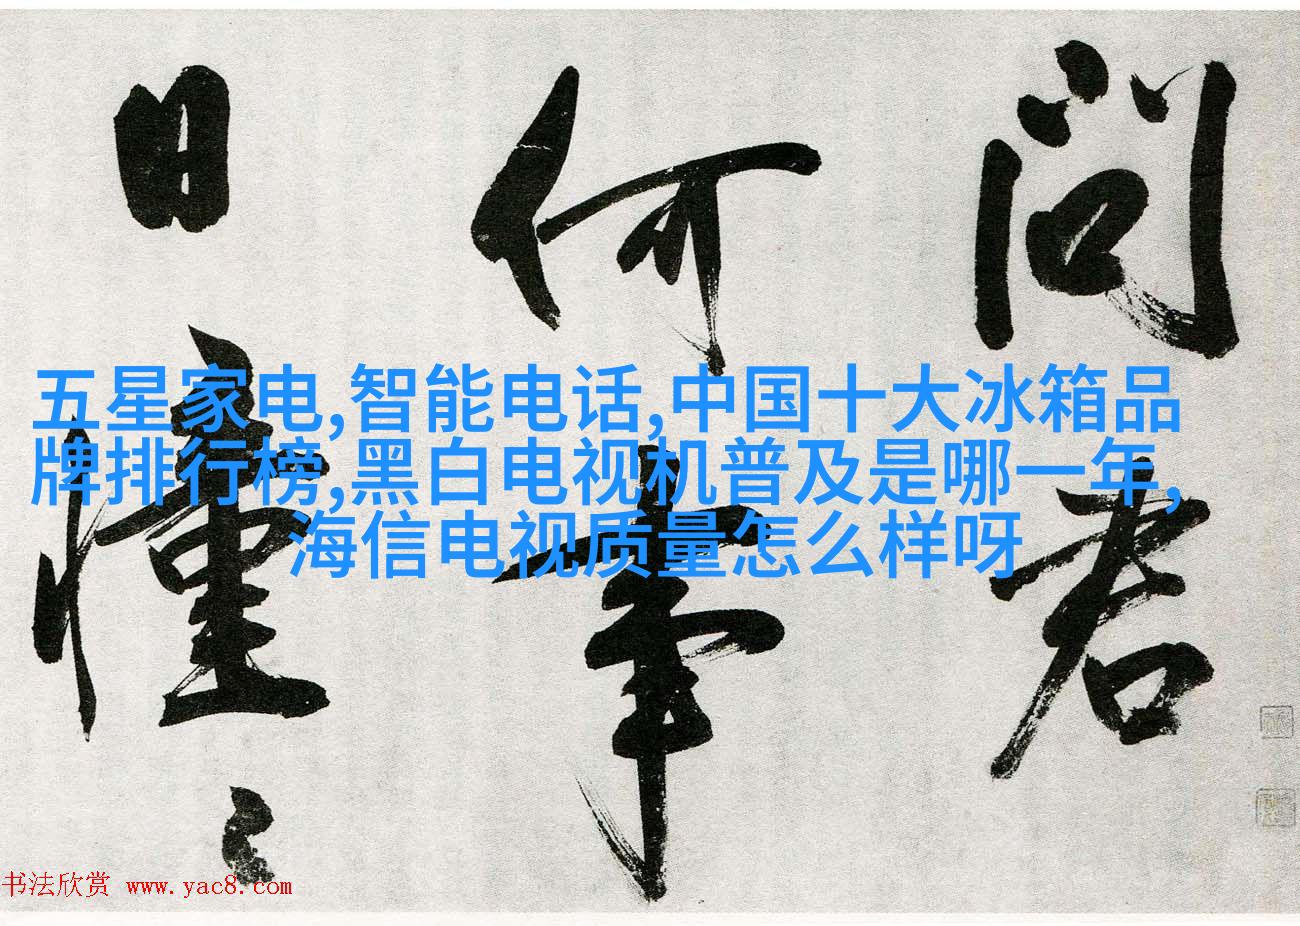 问君
何事
日憧〻
五星家电,智能电话,中国十大冰箱品
牌排行榜,黑白电视机普及是哪一年,
海信电视质量怎么样呀
书法欣赏 www.yac8.com